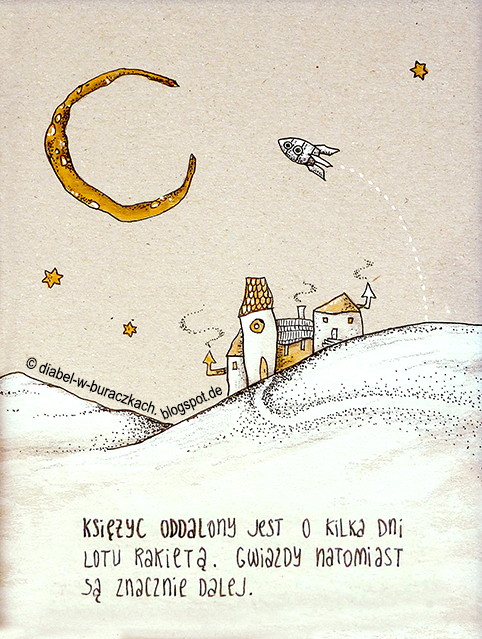 © diabel-w-buraczkach. blogspot.de
KSIĘŻYC ODDALONY JEST O KILKA DNI
LOTU RAKIETĄ. GWIAZDY NATOMIAST
SĄ ZNACZNIE DALEJ.